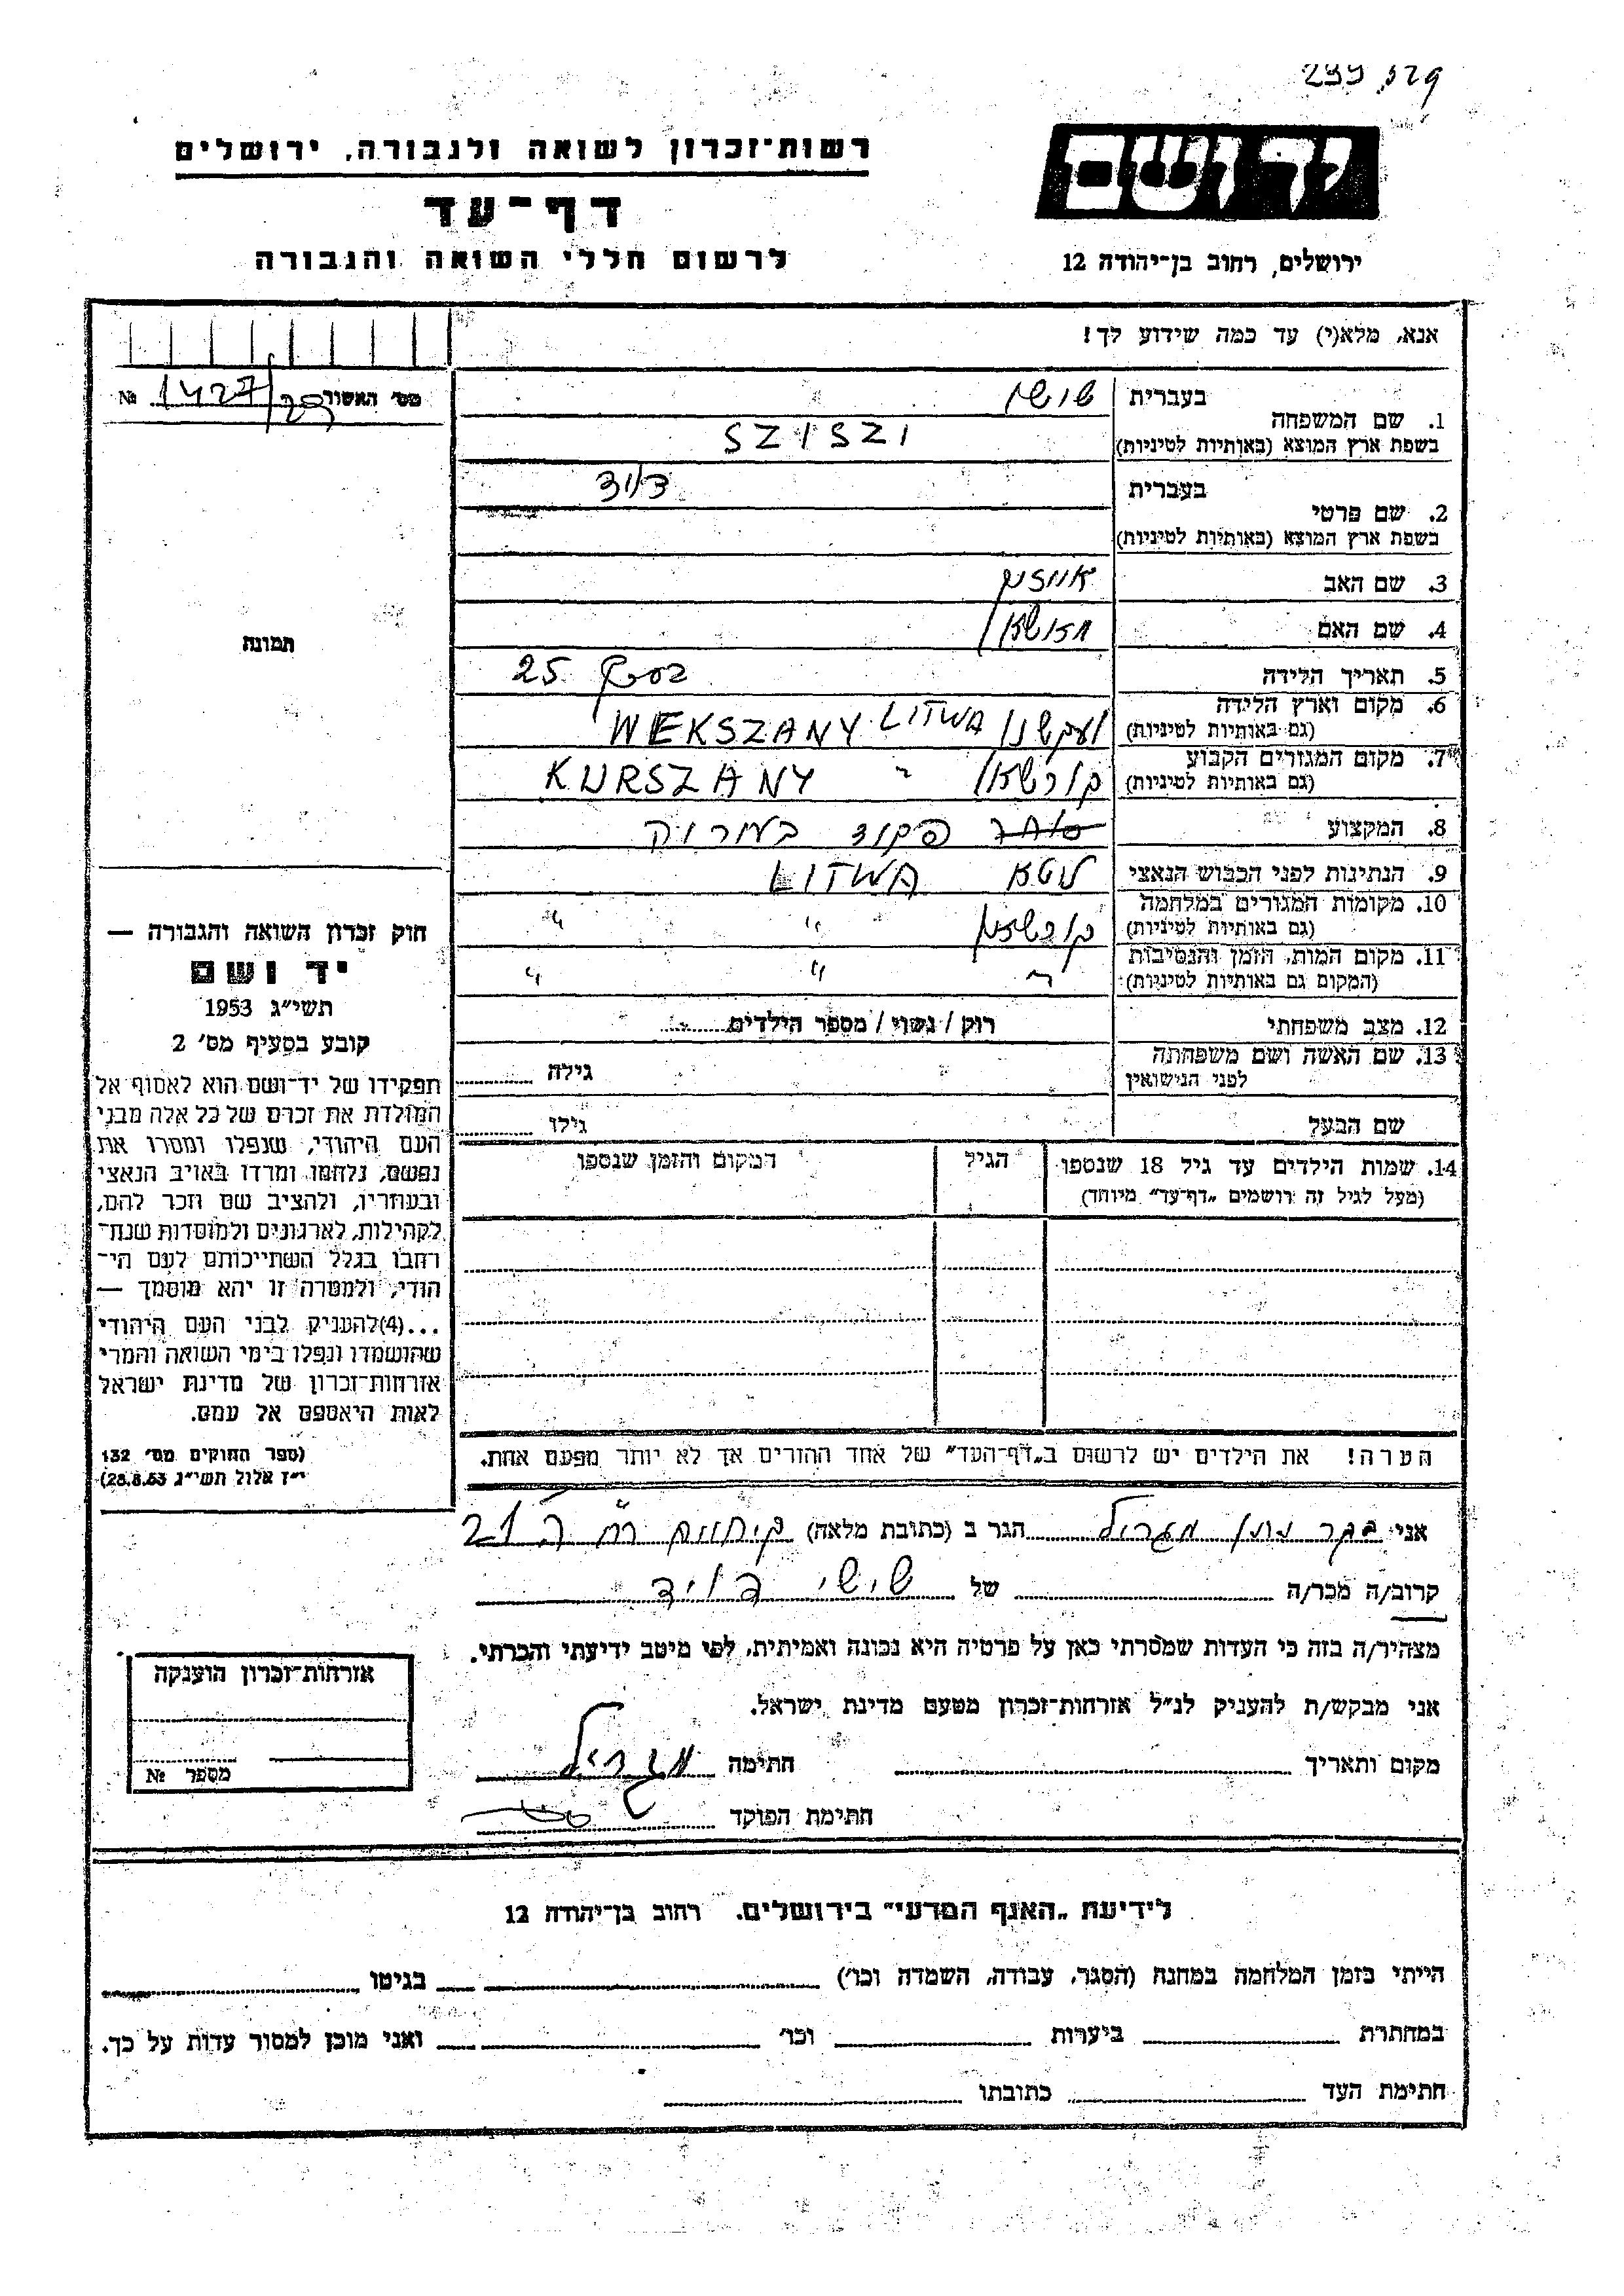 299
רשות־זכרון לשואה ולגבורה, ירושלים
דף־עד
לרשום חללי השואה והגבורה
יד ושם
ירושלים, רחוב בן־יהודה 12
אנא, מלא(י) עד כמה שידוע לך!
מס' האשור 1427/ №
1. שם המשפחה
בעברית
בשפת ארץ המוצא (באותיות לטיניות) SZISZI
2. שם פרטי
בעברית דויד
בשפת ארץ המוצא (באותיות לטיניות)
3. שם האב
4. שם האם
5. תאריך הלידה 25
6. מקום וארץ הלידה (גם באותיות לטיניות) WEKSZANY LITWA
7. מקום המגורים הקבוע (גם באותיות לטיניות) KURSZANY "
8. המקצוע סוחר פקוד
9. הנתינות לפני הכבוש הנאצי ליטא LITWA
10. מקומות המגורים במלחמה (גם באותיות לטיניות) " "
11. מקום המות, הזמן והנסיבות (המקום גם באותיות לטיניות) " " "
12. מצב משפחתי רווק / נשוי / מספר הילדים
13. שם האשה ושם משפחתה לפני הנישואין גילה
שם הבעל גילו
14. שמות הילדים עד גיל 18 שנספו (מעל לגיל זה רושמים „דף־עד" מיוחד)
הגיל
המקום והזמן שנספו
הערה! את הילדים יש לרשום ב„דף־העד" של אחד ההורים אך לא יותר מפעם אחת.
תמונה
חוק זכרון השואה והגבורה —
יד ושם
תשי"ג 1953
קובע בסעיף מס' 2
תפקידו של יד־ושם הוא לאסוף אל
המולדת את זכרם של כל אלה מבני
העם היהודי, שנפלו ומסרו את
נפשם, נלחמו ומרדו באויב הנאצי
ובעוזריו, ולהציב שם וזכר להם,
לקהילות, לארגונים ולמוסדות שנח־
רבו בגלל השתייכותם לעם הי־
הודי, ולמטרה זו יהא מוסמך —
...(4)להעניק לבני העם היהודי
שהושמדו ונפלו בימי השואה והמרי
אזרחות־זכרון של מדינת ישראל
לאות היאספם אל עמם.
(ספר החוקים מס' 132
י"ז אלול תשי"ג 28.8.53)
אני הגר ב (כתובת מלאה) 21
קרוב/ה מכר/ה של שישי דויד
מצהיר/ה בזה כי העדות שמסרתי כאן על פרטיה היא נכונה ואמיתית, לפי מיטב ידיעתי והכרתי.
אני מבקש/ת להעניק לנ"ל אזרחות־זכרון מטעם מדינת ישראל.
מקום ותאריך חתימה
חתימת הפוקד
אזרחות־זכרון הוענקה
מספר №
לידיעת „האגף המדעי" בירושלים, רחוב בן־יהודה 12
הייתי בזמן המלחמה במחנה (הסגר, עבודה, השמדה וכו') בגיטו
במחתרת ביערות וכו' ואני מוכן למסור עדות על כך.
חתימת העד כתובתו